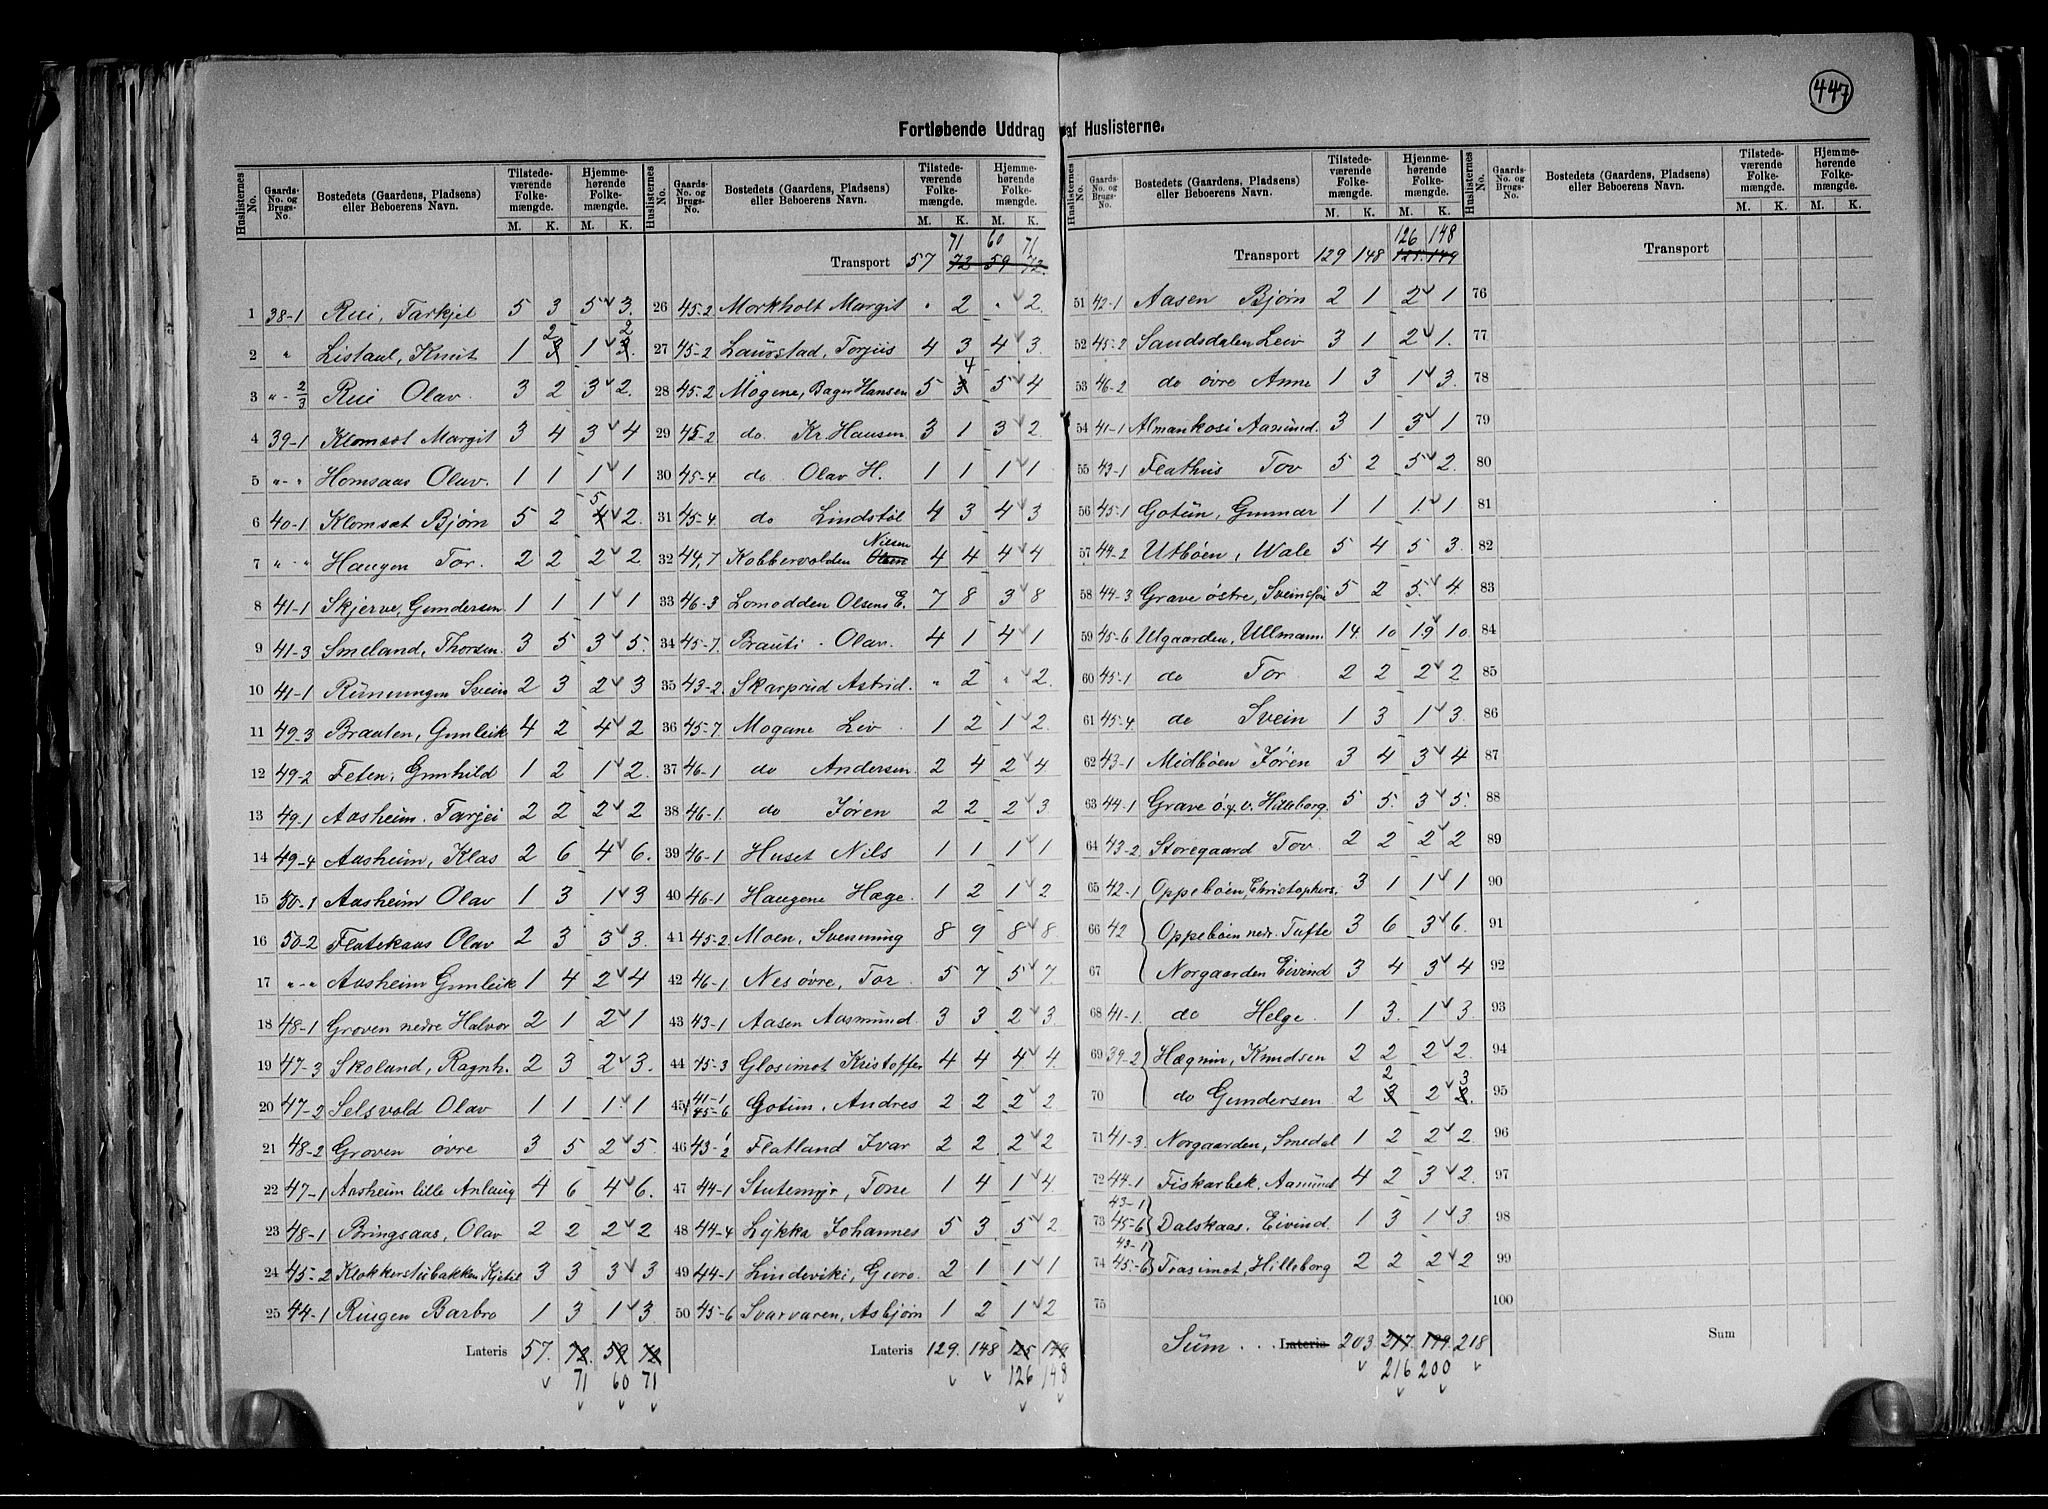 447
Fortløbende Uddrag af Huslisterne.
Huslisternes No. Gaards-No. og Brugs-No. Bostedets (Gaardens, Pladsens) eller Beboerens Navn. Tilstedeværende Folkemængde. M. K. Hjemmehørende Folkemængde. M. K.
1 38-1 Rui, Tarkjel 5 3 5 3.
2 " Listaul, Knut 1 3 2 1 3 2
3 "- 2/3 Rui Olav. 3 2 3 2.
4 39-1 Klomset Margit 3 4 3 4
5 "-" Homsaas Olav. 1 1 1 1
6 40-1 Klomset Bjørn 5 2 4 5 2.
7 "-" Haugen Tor. 2 2 2 2
8 41-1 Skjerve, Gundersen. 1 1 1 1
9 41-3 Smeland, Thorsen. 3 5 3 5.
10 41-1 Rünningen Svein 2 3 2 3
11 49-3 Braaten, Gunleik 4 2 4 2
12 49-2 Feten, Gunhild 1 2 1 2.
13 49-1 Aasheim. Tarjei 2 2 2 2
14 49-4 Aasheim, Klas 2 6 4 6.
15 50-1 Aasheim Olav 1 3 1 3
16 50-2 Flatekaas Olav 2 3 3 3.
17 "-" Aasheim Gunleik 1 4 2 4
18 48-1 Groven nedre Halvor 2 1 2 1
19 47-3 Skoland, Ragnh. 2 3 2 3.
20 47-2 Selsvold Olav 1 1 1 1
21 48-2 Groven øvre 3 5 2 5.
22 47-1 Aasheim lille Anlaug 4 6 4 6.
23 48-1 Bringsaas, Olav 2 2 2 2
24 45-2 Klokkerstubakken Kjetil 3 3 3 3
25 44-1 Ringen Barbro 1 3 1 3
Lateris 57. 72. 59 72
71 60 71
Huslisternes No. Gaards-No. og Brugs-No. Bostedets (Gaardens, Pladsens) eller Beboerens Navn. Tilstedeværende Folkemængde. M. K. Hjemmehørende Folkemængde. M. K.
71 60 71
Transport 57 72 59 72.
26 45-2 Morkholt Margit " 2 " 2.
27 45-2 Laurstad, Torjus 4 3 4 3.
28 45-2 Mogene, Bager Hansen 5 3 4 5 4
29 45-2 do. Kr. Hansen. 3 1 3 2
30 45-4 do. Olav H. 1 1 1 1
31 45-4. do Lindstöl 4 3 4 3
32 44,7 Kobbervolden Olsen Nilsen 4 4 4 4
33 46-3 Lomodden Olsens E. 7 8 3 8
34 45-7. Brauti. Olav. 4 1 4 1
35 43-2. Skarprud Astrid. " 2 " 2.
36 45-7 Mogane Liv 1 2 1 2
37 46-1 do Andersen. 2 4 2 4
38 46-1. do Jøren 2 2 2 3
39 46-1 Huset Nils 1 1 1 1
40 46-1 Haugene Hæge. 1 2 1 2
41 45-2 Moen, Svenning 8 9 8 8
42 46-1 Nes øvre, Tor 5 7 5 7.
43 43-1 Aasen Aasmund. 3 3 2 3
44 45-3 Glosimot Kristoffer 4 4 4 4.
45 41-1 45-6 Gotun, Andres 2 2 2 2
46 43-1/2 Flatland Ivar 2 2 2 2
47 44-1 Stutemyr, Tone 1 4 1 4
48 44-4 Lykka Johannes 5 3 5 2.
49 44-1 Lindeviki, Guro. 2 1 1 1
50 45-6 Svarvaren, Asbjørn 1 2 1 2
Lateris 129. 148 125 149
126 148
Huslisternes No. Gaards-No. og Brugs-No. Bostedets (Gaardens, Pladsens) eller Beboerens Navn. Tilstedeværende Folkemængde. M. K. Hjemmehørende Folkemængde. M. K.
126 148
Transport 129 148 125 149
51 42-1 Aasen Bjørn 2 1 2 1
52 45-2 Sandsdalen Leiv 3 1 2 1.
53 46-2 do øvre Anne 1 3 1 3.
54 41-1 Almankosi Aasmund. 3 1 3 1
55 43-1 Flathus Tov 5 2 5 2.
56 45-1 Gotün, Gunnar 1 1 1 1
57 44-2 Utbøen, Wale 5 4 5 3.
58 44-3 Grave østre, 5 2 5. 4
59 45-6 Utgaarden, Ullmann. 14. 10 19 10.
60 45-1 do Tor 2 2 2 2
61 45-4 do Svein 1 3 1 3.
62 43-1 Midbøen Jøren 3 4 3 4
63 44-1 Grave ø. v. Hilleborg. 5 5. 3 5.
64 43-2. Storegaard Tov. 2 2 2 2
65 42-1 Oppebøen, Christophers. 3 1 1 1
66 42 Oppebøen nedr. Tufte 3 6 3 6.
67 Norgaarden Eivind 3 4 3 4
68 41-1. do Helge. 1 3. 1 3.
69 39-2 Hægnin, Knudsen 2 2 2 2.
70 do Gundersen 2 3 2 2 2. 3
71 41-3. Norgaarden, Smedal 1 2 2 2.
72 44-1 Fiskarbek. Aasmund 4 2 3 2.
73 43-1 45-6 Dalskaas. Eivind. 1 3 1 3.
74 43-1 45-6 Traasimot, Hilleborg 2 2 2 2
75
Süm . . Lateris 203 217. 199. 218
216 200
Huslisternes No. Gaards-No. og Brugs-No. Bostedets (Gaardens, Pladsens) eller Beboerens Navn. Tilstedeværende Folkemængde. M. K. Hjemmehørende Folkemængde. M. K.
Transport
76
77
78
79
80
81
82
83
84
85
86
87
88
89
90
91
92
93
94
95
96
97
98
99
100
Sum